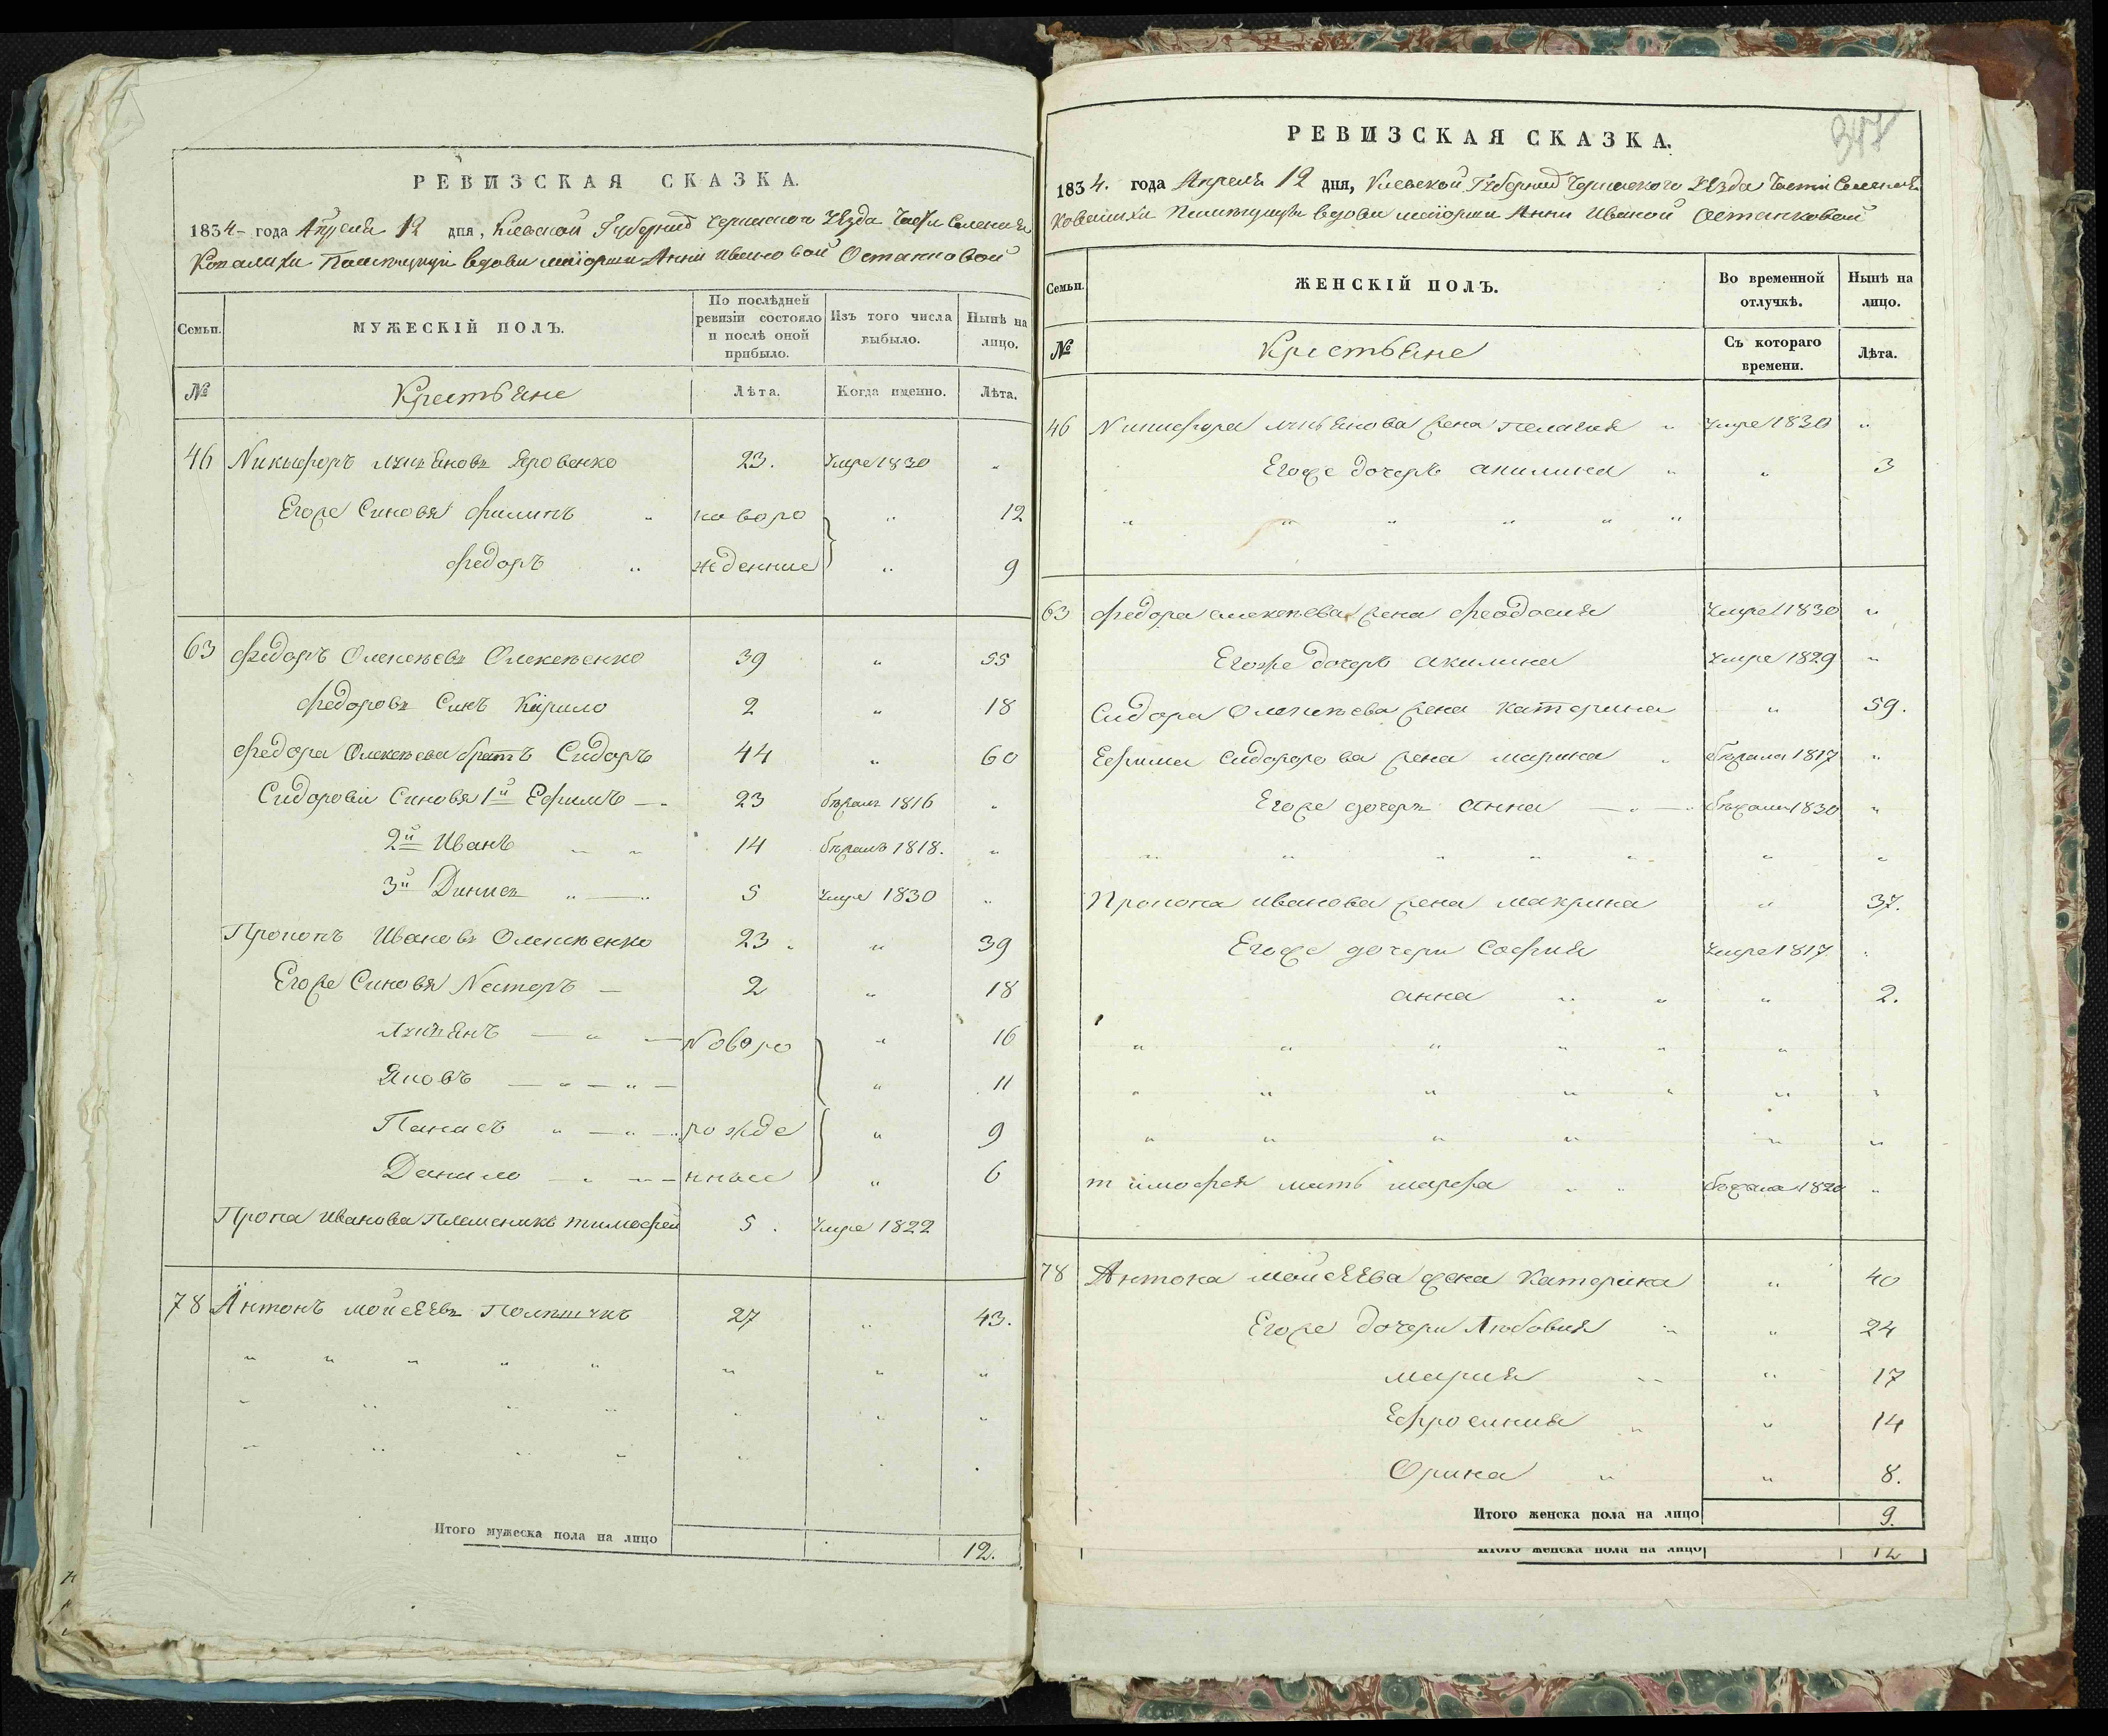 РЕВИЗСКАЯ СКАЗКА.
1834 года Апреля 12 дня, Киевской Губернии Уезда Части Селения
вдови маіорши Анни Ивановой Остантовой
Семьи.
МУЖЕСКІЙ ПОЛЪ.
По послѣдней ревизіи состояло и послѣ оной прибыло.
Изъ того числа выбыло.
Нынѣ на лицо.
№
Крестьяне
Лѣта.
Когда именно.
Лѣта.
46 Никифоръ Яровенко 23. Умре 1830 "
Егоже Синовя Филипъ " новоро " 12
Федоръ " жденние " 9
63 Федоръ 39 " 55
Федоровъ Синъ Кірило 2 " 18
Федора братъ Сидоръ 44 " 60
Сидорови Синовя 1й Ефимъ 23 бежалъ 1816 "
2й Иванъ 14 бежалъ 1818. "
3й Динисъ 5 Умре 1830 "
Прокопъ Ивановъ 23. " 39
Егоже Синовя Несторъ 2 " 18
Лукъянъ Новоро " 16
Яковъ " 11
Панасъ рожде " 9
Данило нные " 6
Иванова Племеникъ тимофей 5. Умре 1822
78 Антонъ мойсеевъ 27 " 43.
Итого мужеска пола на лицо 12.
РЕВИЗСКАЯ СКАЗКА.
1834. года Апреля 12 дня, Киевской Губернии Уезда Части Селения
вдови маіорши Анни
Семьи.
ЖЕНСКІЙ ПОЛЪ.
Во временной отлучкѣ.
Нынѣ на лицо.
№
Крестьяне
Съ котораго времени.
Лѣта.
46 Никифора жена Пелагия " Умре 1830 "
Егоже дочерь акилина " " 3
63 Федора жена Феодосия Умре 1830 "
Егоже дочерь акилина Умре 1829 "
Сидора жена Катерина " 59.
Ефима Сидорова жена марина 1817 "
Егоже дочерь анна 1830 "
Прокопа иванова жена макрина " 37.
Егоже дочери София Умре 1817
анна " 2.
тимофея мать марфа 1820 "
78 Антона мойсеева жена Катерина " 40
Егоже дочери Любовия " 24
мария " 17
Ефросиния " 14
Орина " 8.
Итого женска пола на лицо 9.
Итого женска пола на лицо 12